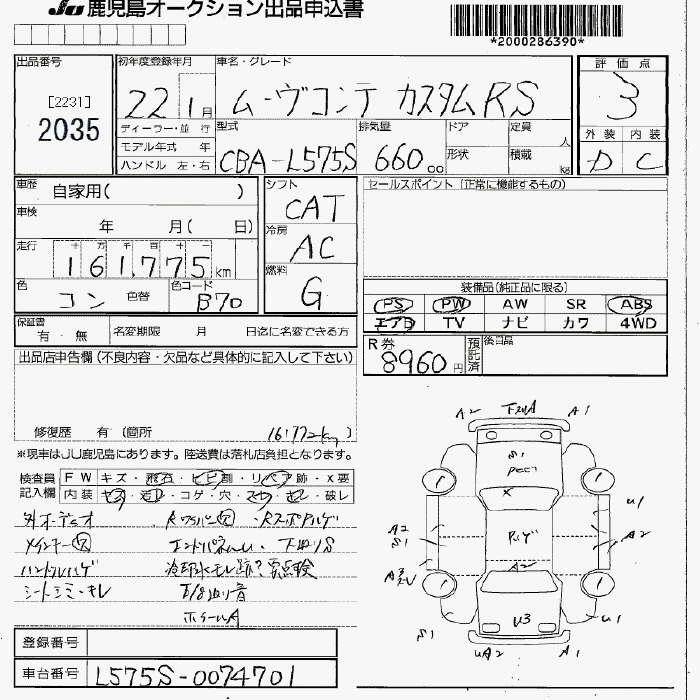 JU 鹿児島オークション出品申込書
*2000286390*
出品番号
[2231]
2035
初年度登録年月
22 1月
車名・グレード
ムーヴコンテ カスタムRS
評価点
3
外装 内装
D C
ディーラー・並行
モデル年式 年
ハンドル 左・右
型式
CBA-L575S
排気量
660.00
ドア
形状
定員
人
積載
kg
車歴
自家用( )
車検
年 月( 日)
走行
十 万 千 百 十 一
161,775 km
色
コン
色替
色コード
B70
シフト
CAT
冷房
AC
燃料
G
セールスポイント (正常に機能するもの)
装備品(純正品に限る)
PS PW AW SR ABS
エアB TV ナビ カワ 4WD
保証書
有・無
名変期限 月 日迄に名変できる方
R券
8960円
預託済
後日品
出品店申告欄(不良内容・欠品など具体的に記入して下さい)
修復歴 有 (箇所 )
※現車はJU鹿児島にあります。陸送費は落札店負担となります。
検査員記入欄
FW キズ・飛石・ヒビ割・リペア跡・X要
内装 キズ・ヨゴレ・コゲ・穴・スレ・キレ・破レ
外オーディオ
メインキー欠
ハンドルハゲ
シートシミ・キレ
Rワイパー欠
・Rスポハゲ
・下廻りS
冷却水モレ跡?要点検
E/G廻り音
ホイールA
A2 下廻りA A1
S1
X
U1
A2
S1
A2
Rハゲ
A2
U3
S1
U1
UA2
A1
登録番号
車台番号 L575S-0074701